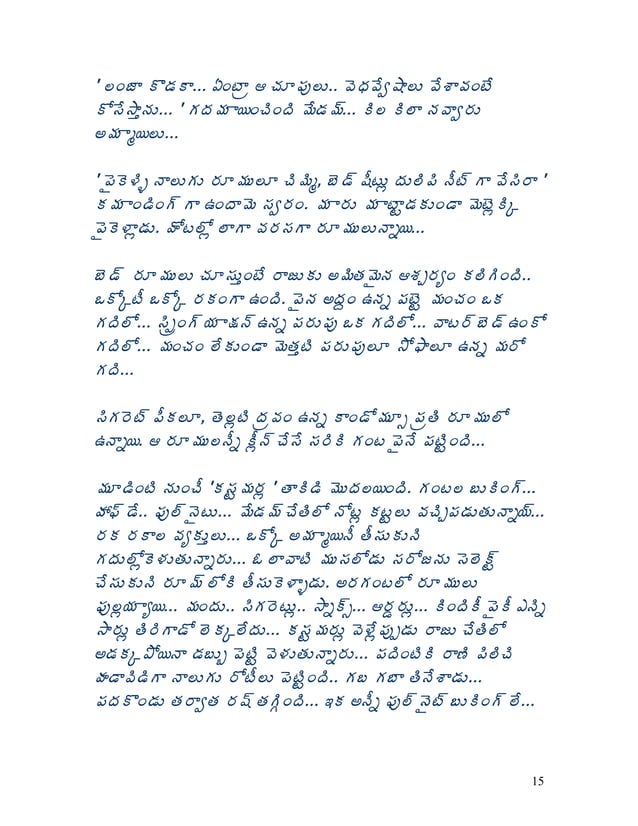 'లంజా కొడకా... ఏంట్రా ఆ చూపులు.. వెధవ్వేషాలు వేశావంటే
కోసేస్తాను... ' గదమాయించింది మేడమ్... కిల కిలా నవ్వారు
అమ్మాయిలు...
'పైకెళ్ళి నాలుగు రూములూ చిమ్మి, బెడ్ షీట్లు దులిపి నీట్ గా వేసిరా '
కమాండింగ్ గా ఉందామె స్వరం. మారు మాట్లాడకుండా మెట్లెక్కి
పైకెళ్లాడు. హోటల్లో లాగా వరసగా రూములున్నాయి...
బెడ్ రూములు చూస్తుంటే రాజుకు అమితమైన ఆశ్చర్యం కలిగింది..
ఒక్కోటీ ఒక్కో రకంగా ఉంది. పైన అద్దం ఉన్న పట్టె మంచం ఒక
గదిలో... స్ప్రింగ్ యాక్షన్ ఉన్న పరుపు ఒక గదిలో... వాటర్ బెడ్ ఉంకో
గదిలో... మంచం లేకుండా మెత్తటి పరుపులూ సోఫాలూ ఉన్న మరో
గది...
సిగరెట్ పీకలూ, తెల్లటి ద్రవం ఉన్న కాండోమ్సూ ప్రతి రూములో
ఉన్నాయి. ఆ రూములన్నీ క్లీన్ చేసే సరికి గంట పైనే పట్టింది...
మూడింటి నుంచీ 'కస్టమర్ల ' తాకిడి మొదలయింది. గంటల బుకింగ్...
హాఫ్ డే.. ఫుల్ నైటు... మేడమ్ చేతిలో నోట్ల కట్టలు వచ్చిపడుతున్నాయ్...
రక రకాల వ్యక్తులు... ఒక్కో అమ్మాయినీ తీసుకుని
గదుల్లోకెళుతున్నారు... ఓ లావాటి ముసలోడు సరోజను సెలెక్ట్
చేసుకుని రూమ్ లోకి తీసుకెళ్ళాడు. అరగంటలో రూములు
ఫుల్లయ్యాయి... మందు.. సిగరెట్లు.. స్నాక్స్... ఆర్డర్లు... కిందికీ పైకీ ఎన్ని
సార్లు తిరిగాడో లెక్కలేదు... కస్టమర్లు వెళ్లేప్పుడు రాజు చేతిలో
అడక్కపోయినా డబ్బు పెట్టి వెళుతున్నారు... పదింటికి రాణి పిలిచి
హడావిడిగా నాలుగు రోటీలు పెట్టింది.. గబ గబా తినేశాడు...
పదకొండు తర్వాత రష్ తగ్గింది... ఇక అన్నీ ఫుల్ నైట్ బుకింగ్ లే...
15